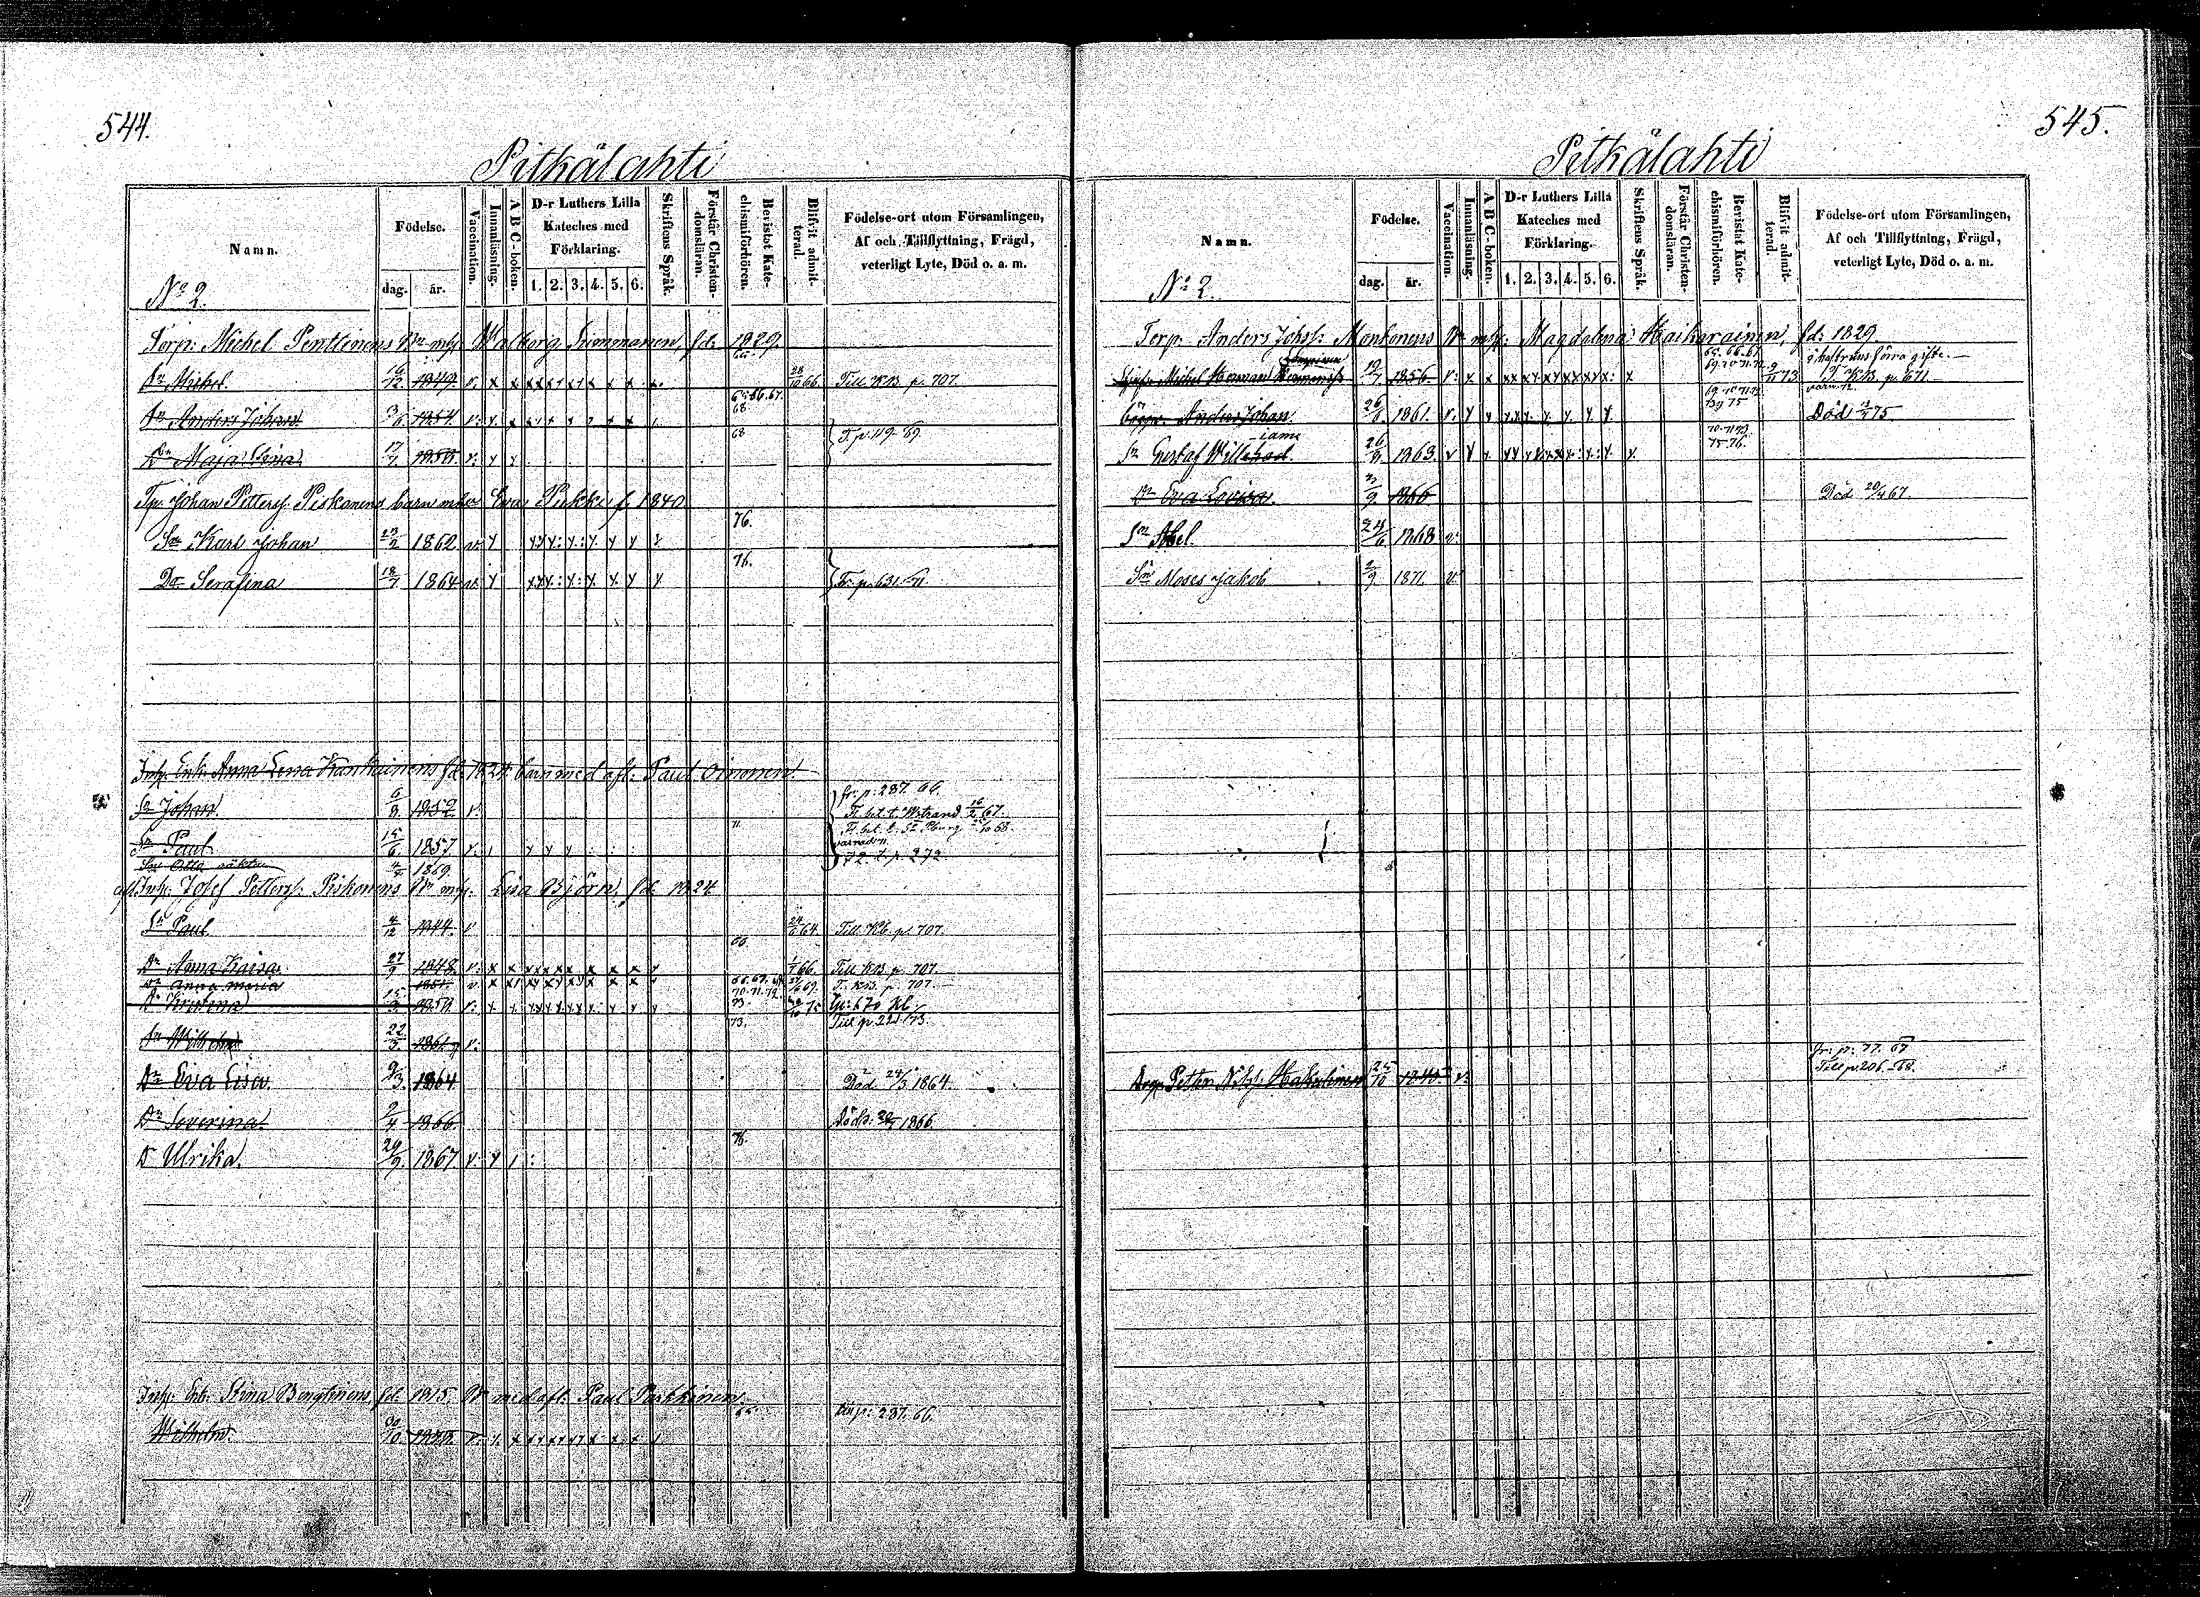 544.
Pitkälahti
Namn.
Födelse.
dag.
år.
Vaccination.
Innanläsning.
A B C-boken.
D-r Luthers Lilla Kateches med Förklaring.
1. 2. 3. 4. 5. 6.
Skriftens Språk.
Förstår Christendomsläran.
Bevistat Katechismiförhören.
Blifvit admitterad.
Födelse-ort utom Församlingen,
Af och Tillflyttning, Frägd,
veterligt Lyte, Död o. a. m.
No 2.
Torp: Michel Penttinens Bn m/h Walborg Summanen fd: 1829.
Sn Michel 16/12 1849. v. x x x x x x x x x 28/10 66. Till KB. p. 707.
Sn Anders Johan 3/6 1854 65. 66. 67. 68
Dn Maja Lina 17/7 1858. v. 68 T. p. 119-69.
Tp. Johan Petterss. Piskonens barn m hu Eva Pukki f. 1840
Son Karl Johan 23/2 1862 v. 76.
Dr Serafina 18/7 1864 v. 76. Fr. p. 631-71.
Inh: Enk: Anna Lena Kankainens fd: 1824 barn med afl: Paul Oinonen.
Sn Johan. 6/8 1852 v: fr: p: 287. 66.
Fl. bet. t. Wstrand 16/2 67.
Sn Paul 15/6 1857 v. 71. Fl. bet. t. St. Pburg 25/10 68.
Son Otto oäkta 4/4 1869. 72. T. p. 272
afl. Inh: Josef Petterss: Piskonens Bn m/h. Lisa Björn fd: 1824
Sn Paul 4/12 1844. v 24/6 64. Till KB. p. 707.
Dn Anna Kaisa 27/9 1848. v: x x x x x x x x x 66. 1/7 66. Till KB. p. 707.
Dn Anna Maria 1851. v. 66. 67. 68. 69. T. KB. p. 707.
Dn Kristina 15/3 1858. v: 70. 71. 72. 73. 75 Tp: 670 Kb.
Sn 22/3 1861. v: 73. Till p. 221-73.
Dn Eva Lisa 9/3 1864 Död 24/3 1864.
Dn Severina 9/4 1866. Död: 1866.
D Ulrika. 29/9. 1867 v: 76.
Inh: Enk: Stina Bengtinens fd: 1815, Bn med afl: Paul Parkkinen.
Wilhelm. 20/10. 65. p: 287. 66.
545.
Pitkälahti
Namn.
Födelse.
dag.
år.
Vaccination.
Innanläsning.
A B C-boken.
D-r Luthers Lilla Kateches med Förklaring.
1. 2. 3. 4. 5. 6.
Skriftens Språk.
Förstår Christendomsläran.
Bevistat Katechismiförhören.
Blifvit admitterad.
Födelse-ort utom Församlingen,
Af och Tillflyttning, Frägd,
veterligt Lyte, Död o. a. m.
No 2.
Torp: Anders Johss: Montonens Bn m/h: Magdalena Haikarainen, fd: 1829.
Michel Herman 19/7 1856. v: 65. 66. 67. 69. 70. 71. 72. 9/11 73 i hustruns förra gifte. KB. p. 671.
Anders Johan 26/6. 1861. v. 69. 70. 71. 72. 73. 75 Död 75.
Sn Gustaf Willehad. -iam 26/8. 1863. v 70. 71 73. 75. 76.
Dn Eva Lovisa. 9. 1866 Död 20/4 67.
Son Abel. 24/6 1868 v:
Son Moses Jakob 2/9 1871. v:
Petter Nilss: Hakulinen 25/10 1840. v: fr: p: 77. 67
Till p. 206-68.